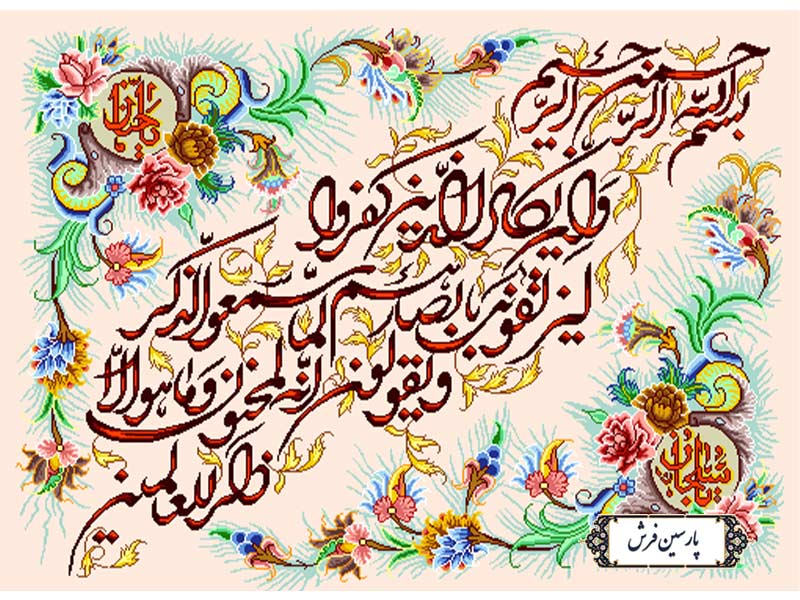 بسم الله الرحمن الرحیم
وان یکاد الذین کفروا
لیزلقونک بابصارهم لمّا سمعوا الذکر
ویقولون انّه لمجنون وما هو الّا
ذکر للعالمین
پارسین فرش